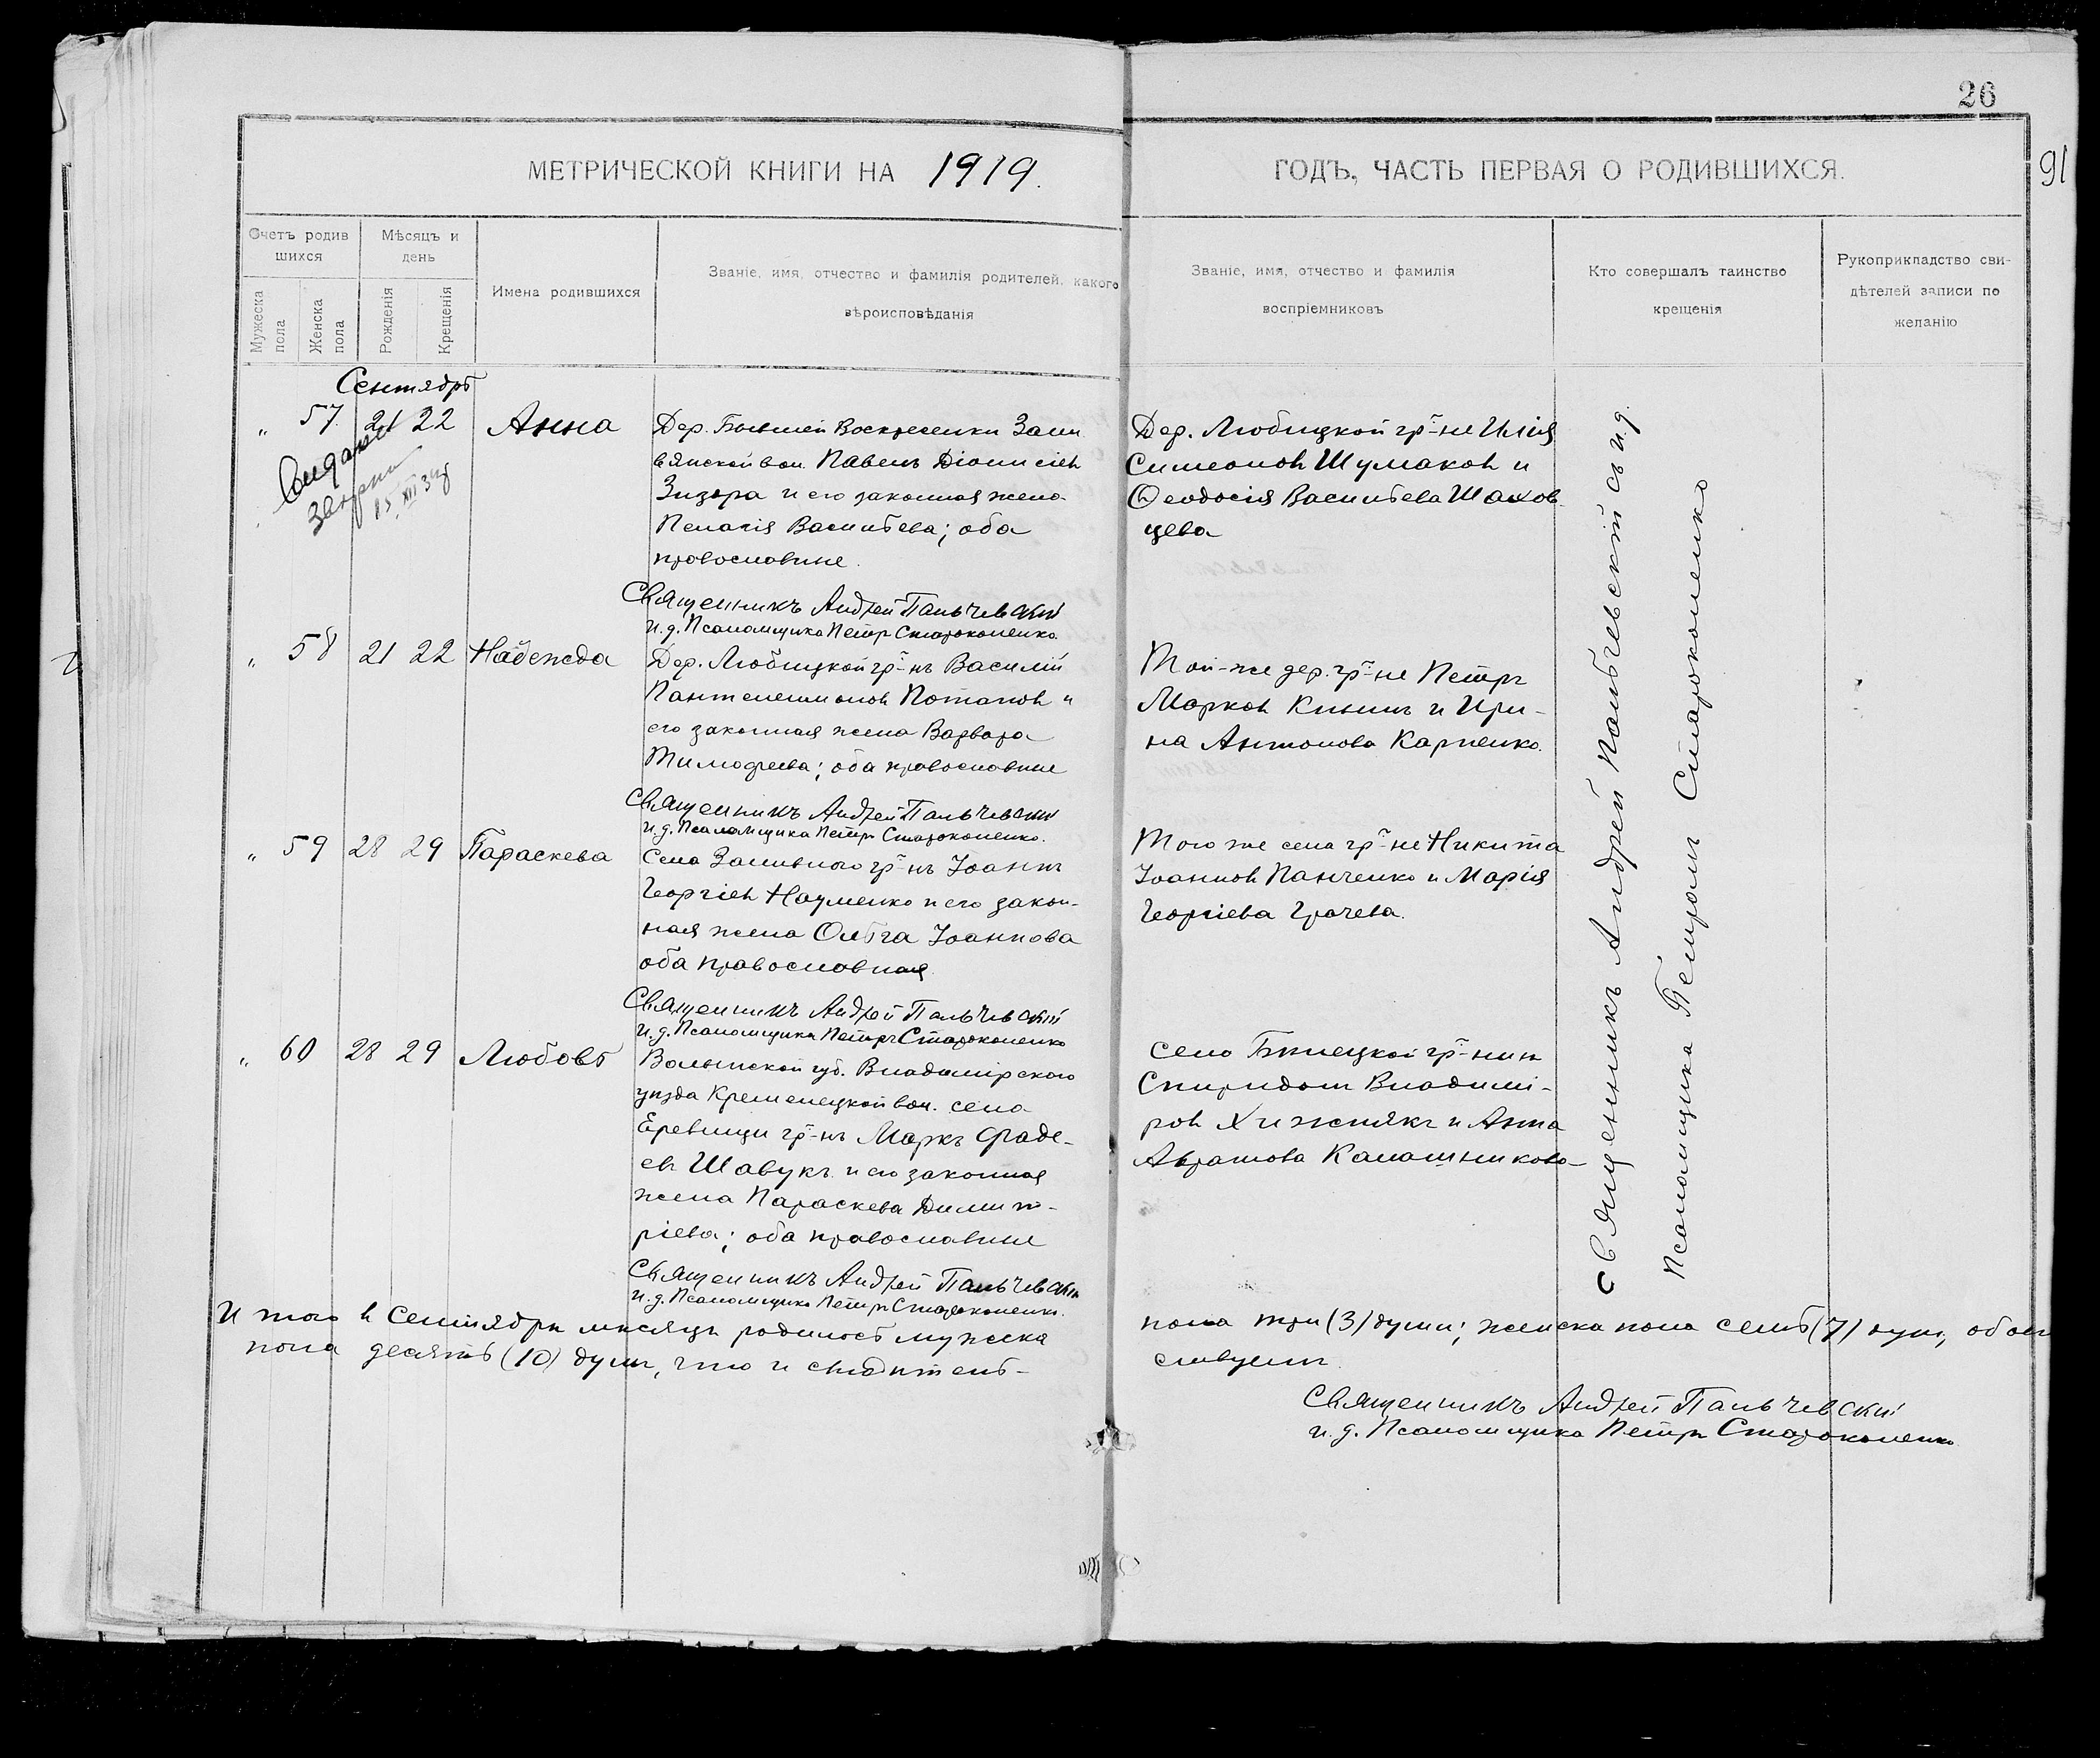 26
91
МЕТРИЧЕСКОЙ КНИГИ НА 1919.
ГОДЪ, ЧАСТЬ ПЕРВАЯ О РОДИВШИХСЯ.
Счетъ родив
шихся
Мужеска
пола
Женска
пола
Мѣсяцъ и
день
Рожденія
Крещенія
Имена родившихся
Званіе, имя, отчество и фамилія родителей, какого
вѣроисповѣданія
Званіе, имя, отчество и фамилія
воспріемниковъ
Кто совершалъ таинство
крещенія
Рукоприкладство сви-
дѣтелей записи по
желанію
Сентябрь
„ 57. 21 22 Анна
15 XII 31
Дер. Бывшей Воскресенки Зали
вянской вол. Павелъ Діонисіев
и его законная жена
Пелагія Васильева; оба
православные.
Священникъ Андрей Пальчевскій
и. д. Псаломщика Петръ Староконенко.
Дер. Любицкой гр-не Илія
Симеонов Шумаков и
Ѳеодосія Васильева Шахов
цева
„ 58 21 22 Надежда
Дер. Любицкой гр-нъ Василій
Пантелеимонов Потапов и
его законная жена Варвара
Тимофеева; оба православные
Священникъ Андрей Пальчевскій
и. д. Псаломщика Петръ Староконенко.
Той-же дер. гр-не Петръ
Марков и Ири-
на Антонова Карпенко.
„ 59 28 29 Параскева
Села Заливного гр-нъ Іоаннъ
Георгіев Науменко и его закон-
ная жена Ольга Іоаннова
оба православная.
Священникъ Андрей Пальчевскій
и. д. Псаломщика Петръ Староконенко
Того же села гр-не Никита
Іоаннов Панченко и Марія
Георгіева Грачева.
„ 60 28 29 Любовь
Волынской губ. Владимірского
уезда Кременецкой вол. села
гр-нъ Маркъ Фаде-
ев Шавукъ и его законная
жена Параскева Димит-
ріева; оба православные
Священникъ Андрей Пальчевскій
и. д. Псаломщика Петръ Староконенко.
село гр-нин
Спиридон Владимі-
ров Хижнякъ и Анна
Аврамова Калашникова
Священникъ Андрей Пальчевскій съ и. д.
Псаломщика Петромъ Староконенко
И того в Сентябре месяце родилось мужска
пола три (3) души; женска пола семь (7) душ, обоего
пола десять (10) душ, что и свидетель-
ствуем.
Священникъ Андрей Пальчевскій
и. д. Псаломщика Петръ Староконенко